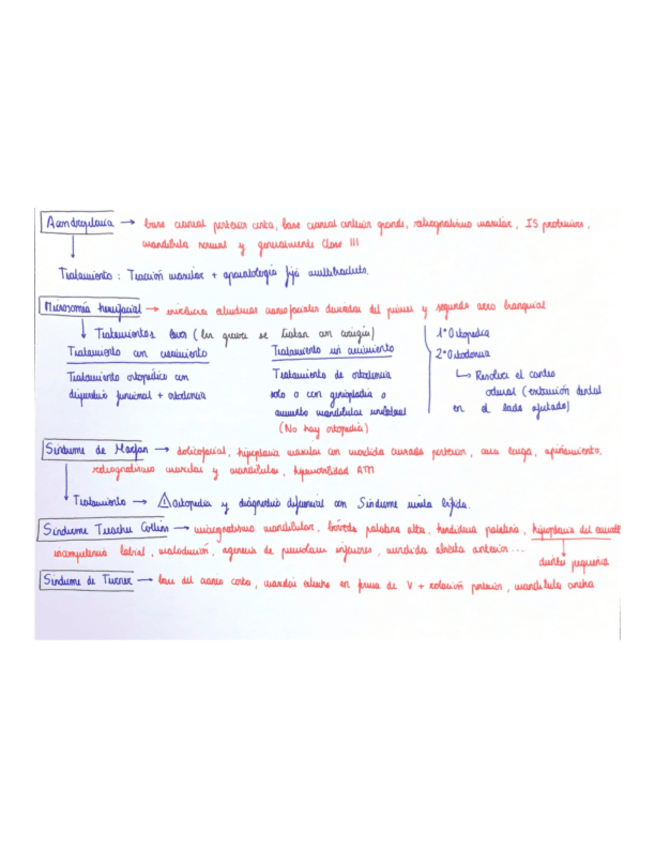 Acondroplasia → base craneal posterior corta, base craneal anterior grande, retrognatismo maxilar, IS protruidos,
mandíbula normal y generalmente Clase III
Tratamiento: Tracción maxilar + aparatología fija multibrackets.
Microsomía hemifacial → involucra estructuras craneofaciales derivadas del primer y segundo arco branquial
Tratamientos leves (los graves se tratan con cirugía)
1º Ortopedia
Tratamiento con crecimiento
Tratamiento sin crecimiento
2º Ortodoncia
Tratamiento ortopédico con
Tratamiento de ortodoncia
↳ Resolver el canteo
dispositivo funcional + ortodoncia
solo o con genioplastia o
oclusal (extrusión dental
aumento mandibular unilateral
en el lado afectado)
(No hay ortopedia)
Síndrome de Marfan → dolicofacial, hipoplasia maxilar con mordida cruzada posterior, cara larga, apiñamiento,
retrognatismo maxilar y mandibular, hipermovilidad ATM
Tratamiento → ⚠ ortopedia y diagnóstico diferencial con Síndrome
Síndrome Treacher Collins → micrognatismo mandibular, bóveda palatina alta, hendidura palatina, hipoplasia del esmalte
incompetencia labial, maloclusión, agenesia de premolares inferiores, mordida abierta anterior...
dientes pequeños
Síndrome de Turner → base del cráneo corta, maxilar estrecho en forma de V + rotación posterior, mandíbula ancha